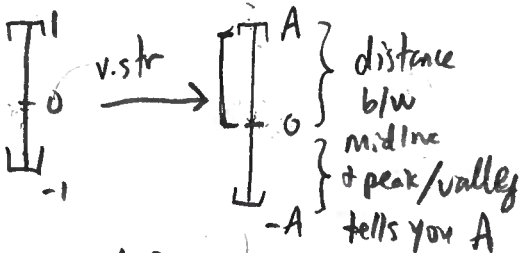 1
0
-1
v.str
A
0
-A
distance
b/w
midline
+ peak/valley
tells you A